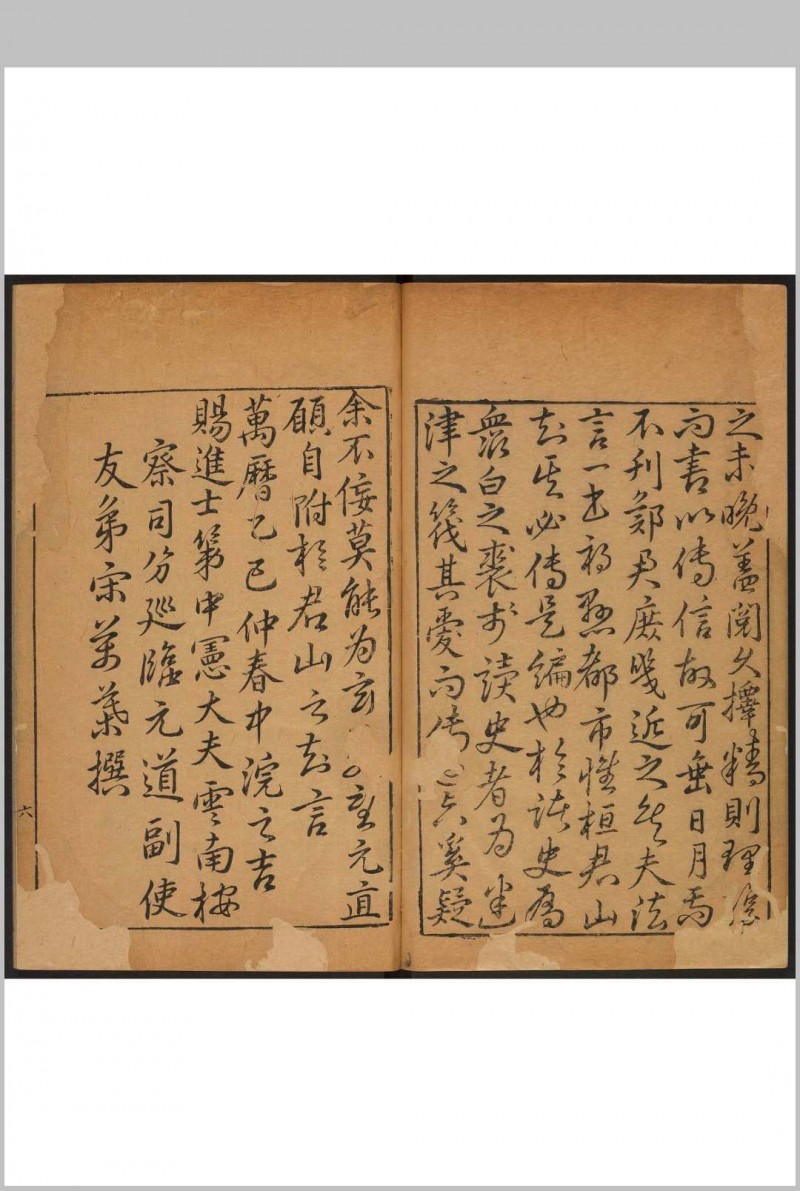 之未晚蓋閱久擇精則理
而書以傳信故可垂日月而
不刊鄭尹庶幾近之矣夫法
言一書初懸都市惟桓君山
知其必傳是編也於諸史為
眾白之裘於讀史者為迷
津之筏其愛而傳之矣奚疑
余不佞莫能為玄望元直
願自附於君山之知言
萬曆乙巳仲春中浣之吉
賜進士第中憲大夫雲南按
察司分廵臨元道副使
友弟宋萬葉撰
六